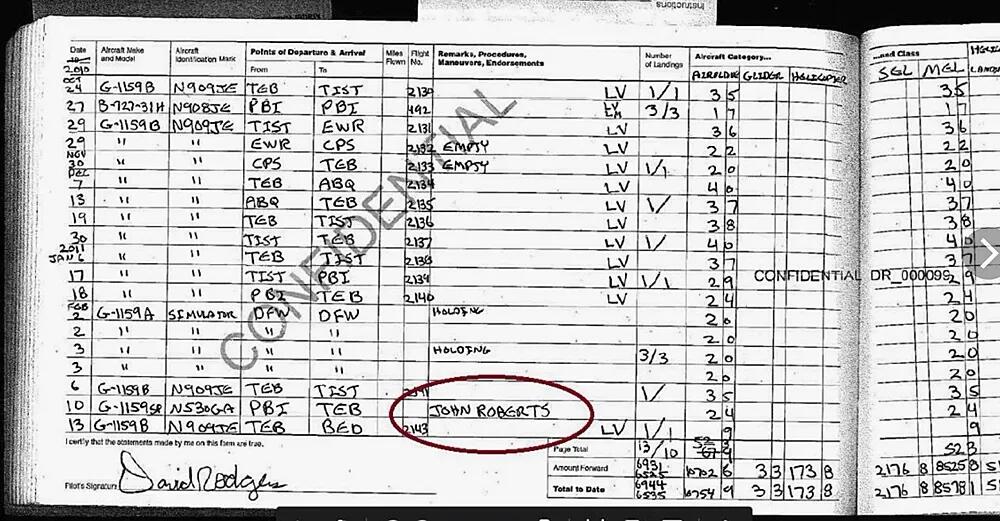 Instructions
Date Aircraft Make and Model Aircraft Identification Mark Points of Departure & Arrival From To Miles Flown Flight No. Remarks, Procedures, Maneuvers, Endorsements Number of Landings Aircraft Category... and Class
2010 AIRPLANE GLIDER HELICOPTER SGL MEL
OCT 24 G-1159B N909JE TEB TIST 2130 LV 1/1 3 5 35
27 B-727-31H N908JE PBI PBI 492 LV 3/3 1 7 17
29 G-1159B N909JE TIST EWR 2131 LV 3 6 36
29 " " EWR CPS 2132 EMPTY LV 2 2 22
NOV 30 " " CPS TEB 2133 EMPTY LV 1/1 2 0 20
DEC 7 " " TEB ABQ 2134 LV 4 0 40
13 " " ABQ TEB 2135 LV 1/ 3 7 37
19 " " TEB TIST 2136 LV 3 8 38
30 " " TIST TEB 2137 LV 1/ 4 0 40
2011 JAN 6 " " TEB TIST 2138 LV 3 7 37
17 " " TIST PBI 2139 LV 1/1 2 9 29
CONFIDENTIAL DR_000095
18 " " PBI TEB 2140 LV 2 4 24
FEB 2 G-1159A SIMULATOR DFW DFW HOLDING 2 0 20
2 " " " " 2 0 20
3 " " " " HOLDING 3/3 2 0 20
3 " " " " 2 0 20
6 G-1159B N909JE TEB TIST 1/ 3 5 35
10 N530GA PBI TEB JOHN ROBERTS 2 4 24
13 G-1159B N909JE TEB BED 2143 LV 1/1 9 9
I certify that the statements made by me on this form are true.
Page Total 13/10 523
Amount Forward 6931 6525 10702 6 3 3 173 8 2176 8 8525 8
Pilot's Signature David Rodgers
Total to Date 6944 6535 10754 9 3 3 173 8 2176 8 8578 1
CONFIDENTIAL